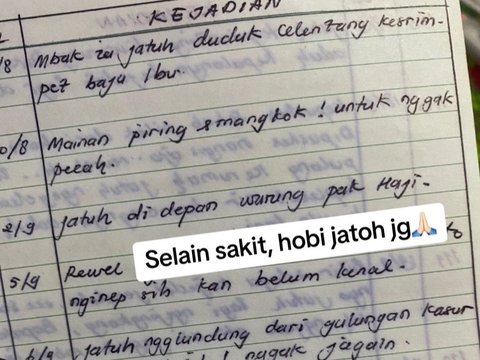 KEJADIAN
/8 Mbak ia jatuh duduk celentang kesrim-
pet baju Ibu.
0/8 Mainan piring & mangkok! untuk nggak
pecah.
2/9 jatuh di depan warung pak Haji.
5/9 Rewel
Selain sakit, hobi jatoh jg🙏🏻
nginep sih kan belum kenal.
6/9 jatuh ngglundung dari gulungan kasur
nggak jagain.